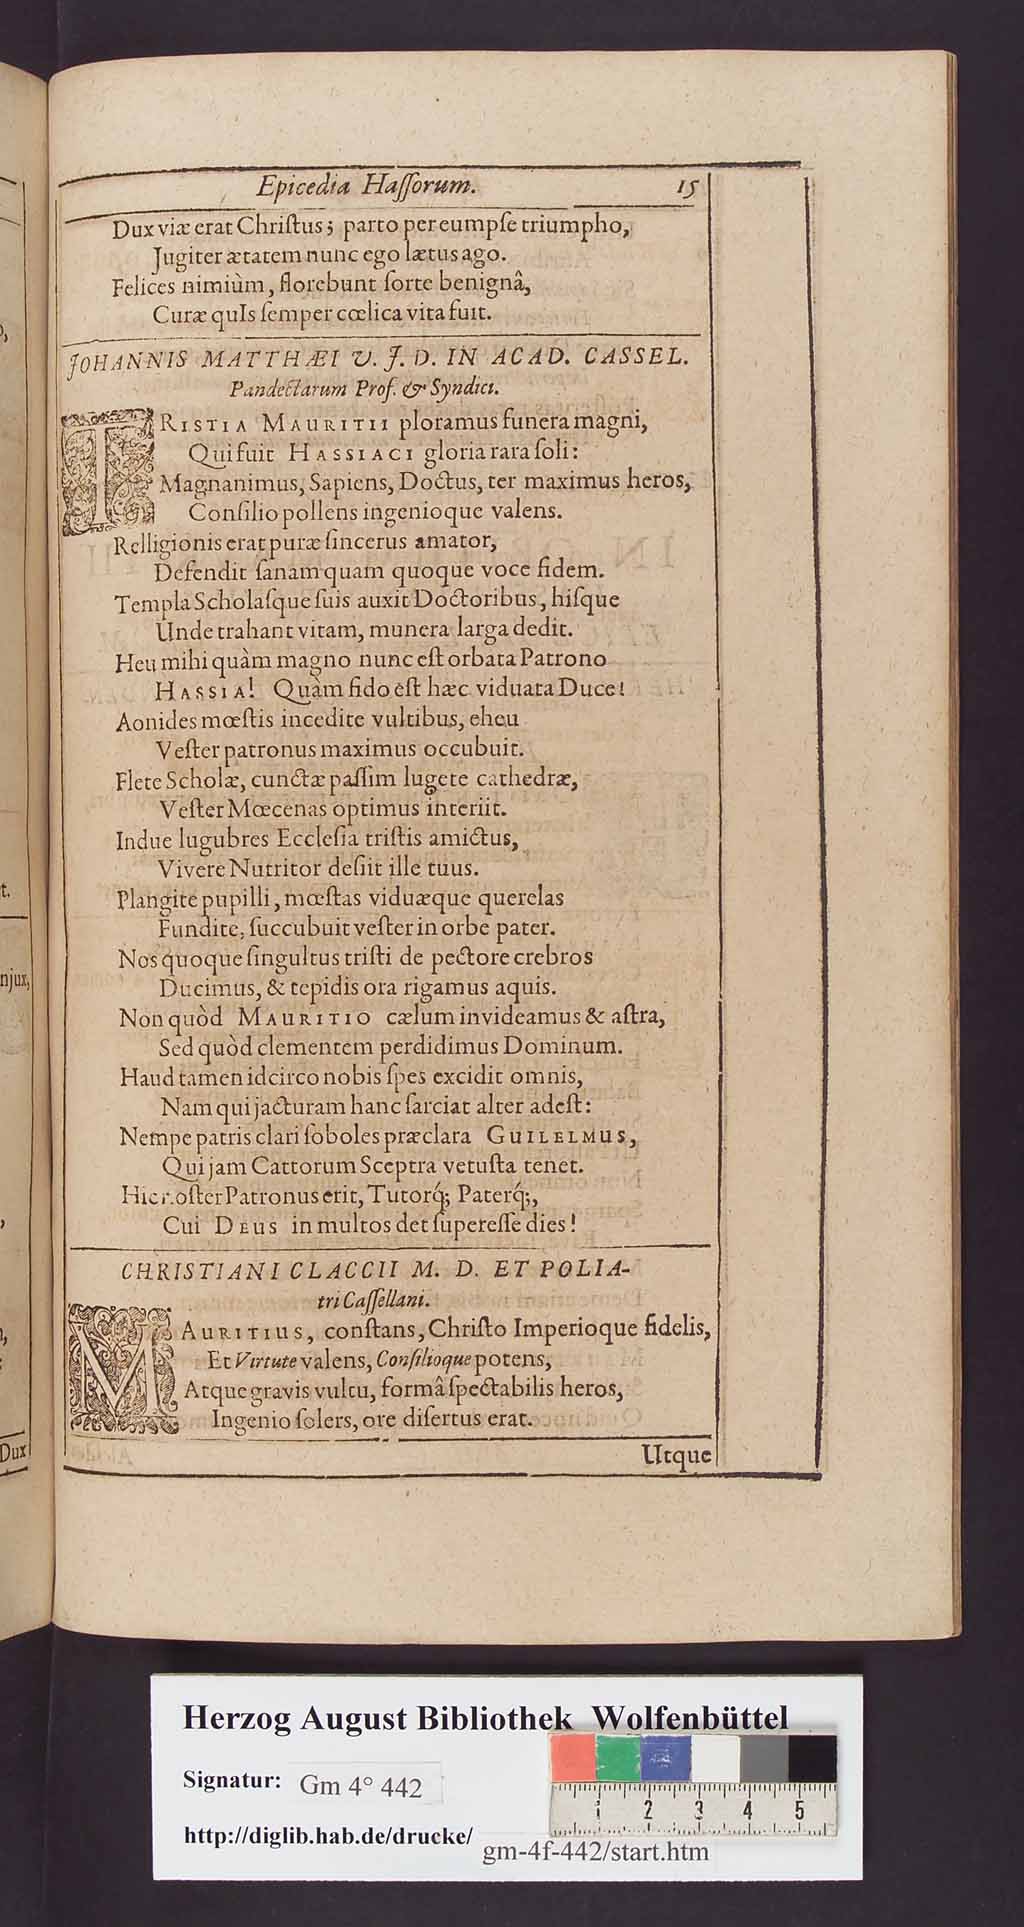 Epicedia Haſſorum. 15
Dux viæ erat Chriſtus; parto per eumpſe triumpho,
Jugiter ætatem nunc ego lætus ago.
Felices nimiùm, florebunt ſorte benignâ,
Curæ quIs ſemper cœlica vita fuit.
JOHANNIS MATTHÆI V. J. D. IN ACAD. CASSEL.
Pandectarum Prof. & Syndici.
TRISTIA MAURITII ploramus funera magni,
Qui fuit HASSIACI gloria rara ſoli:
Magnanimus, Sapiens, Doctus, ter maximus heros,
Conſilio pollens ingenioque valens.
Relligionis erat puræ ſincerus amator,
Defendit ſanam quam quoque voce fidem.
Templa Scholaſque ſuis auxit Doctoribus, hiſque
Unde trahant vitam, munera larga dedit.
Heu mihi quàm magno nunc eſt orbata Patrono
HASSIA! Quàm fido eſt hæc viduata Duce!
Aonides mœſtis incedite vultibus, eheu
Veſter patronus maximus occubuit.
Flete Scholæ, cunctæ paſſim lugete cathedræ,
Veſter Mœcenas optimus interiit.
Indue lugubres Eccleſia triſtis amictus,
Vivere Nutritor deſiit ille tuus.
Plangite pupilli, mœſtas viduæque querelas
Fundite, ſuccubuit veſter in orbe pater.
Nos quoque ſingultus triſti de pectore crebros
Ducimus, & tepidis ora rigamus aquis.
Non quòd MAURITIO cælum invideamus & aſtra,
Sed quòd clementem perdidimus Dominum.
Haud tamen idcirco nobis ſpes excidit omnis,
Nam qui jacturam hanc ſarciat alter adeſt:
Nempe patris clari ſoboles præclara GUILELMUS,
Qui jam Cattorum Sceptra vetuſta tenet.
Hic noſter Patronus erit, Tutorq́; Paterq́;,
Cui DEUS in multos det ſupereſſe dies!
CHRISTIANI CLACCII M. D. ET POLIA-
tri Caſſellani.
MAURITIUS, conſtans, Chriſto Imperioque fidelis,
Et Virtute valens, Conſilioque potens,
Atque gravis vultu, formâ ſpectabilis heros,
Ingenio ſolers, ore diſertus erat.
Utque
t.
njux,
Dux
Herzog August Bibliothek Wolfenbüttel
Signatur: Gm 4° 442
http://diglib.hab.de/drucke/ gm-4f-442/start.htm
1 2 3 4 5